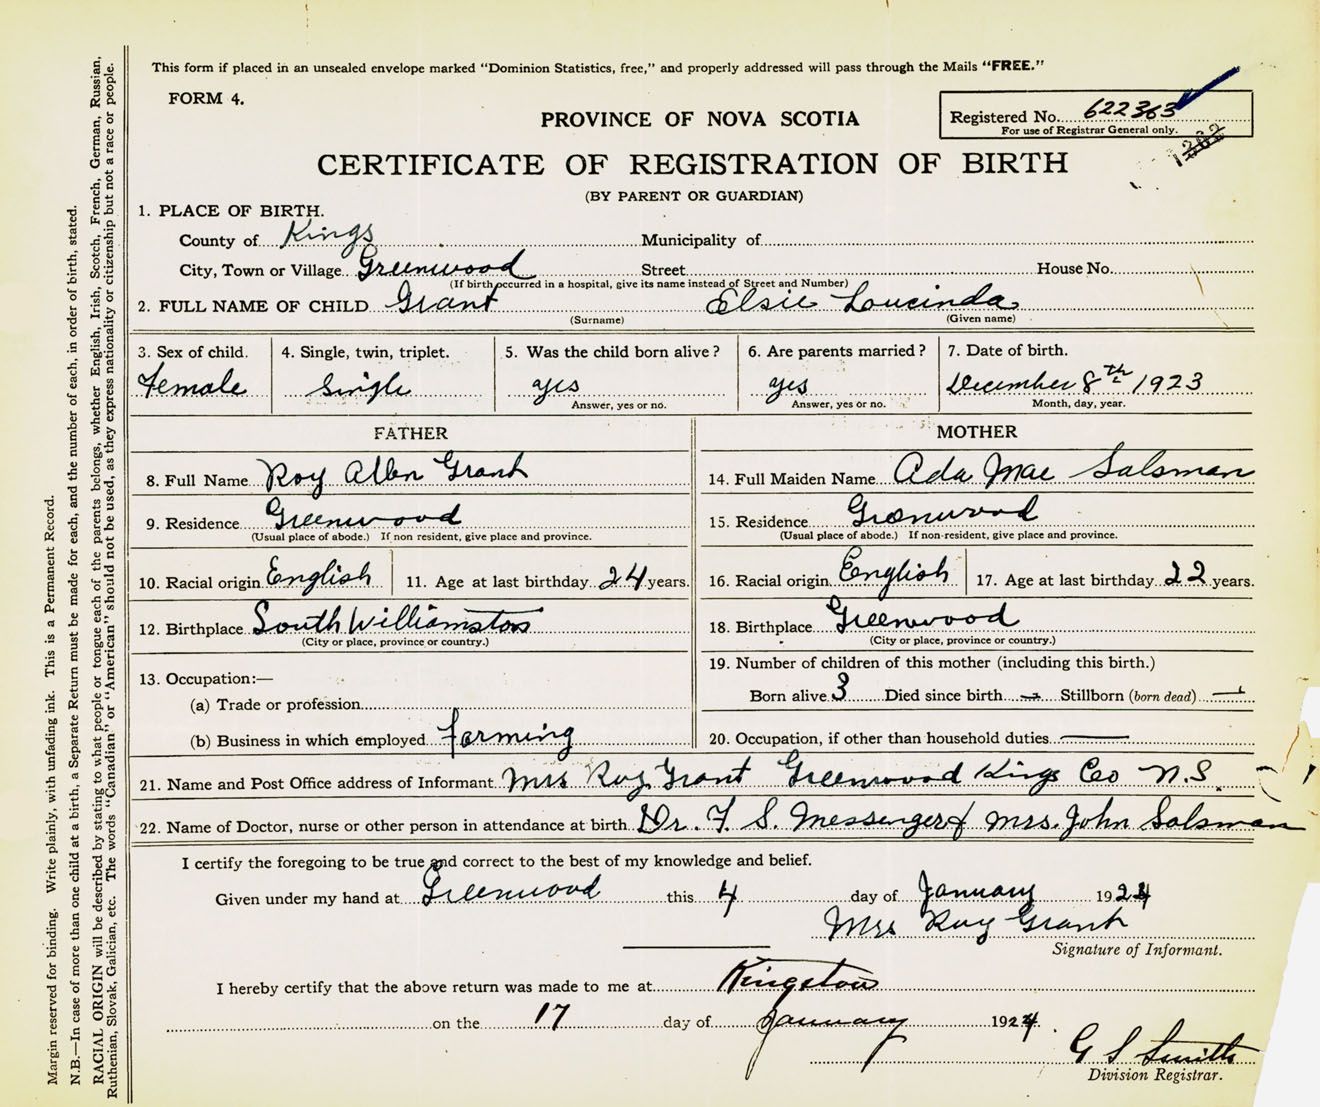 This form if placed in an unsealed envelope marked "Dominion Statistics, free," and properly addressed will pass through the Mails "FREE."
FORM 4.
Registered No. 622363
For use of Registrar General only.
1362
PROVINCE OF NOVA SCOTIA
CERTIFICATE OF REGISTRATION OF BIRTH
(BY PARENT OR GUARDIAN)
1. PLACE OF BIRTH.
County of Kings Municipality of
City, Town or Village Greenwood Street House No.
(If birth occurred in a hospital, give its name instead of Street and Number)
2. FULL NAME OF CHILD Grant Elsie Loucinda
(Surname) (Given name)
3. Sex of child. 4. Single, twin, triplet. 5. Was the child born alive? 6. Are parents married? 7. Date of birth.
Female Single yes yes December 8th 1923
Answer, yes or no. Answer, yes or no. Month, day, year.
FATHER
8. Full Name Roy Allen Grant
9. Residence Greenwood
(Usual place of abode.) If non resident, give place and province.
10. Racial origin English 11. Age at last birthday 24 years.
12. Birthplace South Williamston
(City or place, province or country.)
13. Occupation:—
(a) Trade or profession
(b) Business in which employed farming
MOTHER
14. Full Maiden Name Ada Mae Salsman
15. Residence Greenwood
(Usual place of abode.) If non-resident, give place and province.
16. Racial origin English 17. Age at last birthday 22 years.
18. Birthplace Greenwood
(City or place, province or country.)
19. Number of children of this mother (including this birth.)
Born alive 3 Died since birth — Stillborn (born dead) —
20. Occupation, if other than household duties —
21. Name and Post Office address of Informant Mrs Roy Grant Greenwood Kings Co N.S.
22. Name of Doctor, nurse or other person in attendance at birth Dr. F. S. Messenger & Mrs. John Salsman
I certify the foregoing to be true and correct to the best of my knowledge and belief.
Given under my hand at Greenwood this 4 day of January 1924
Mrs Roy Grant
Signature of Informant.
I hereby certify that the above return was made to me at Kingston
on the 17 day of January 1924.
G S Smith
Division Registrar.
Margin reserved for binding. Write plainly, with unfading ink. This is a Permanent Record.
N.B.—In case of more than one child at a birth, a Separate Return must be made for each, and the number of each, in order of birth, stated.
RACIAL ORIGIN will be described by stating to what people or tongue each of the parents belongs, whether English, Irish, Scotch, French, German, Russian,
Ruthenian, Slovak, Galician, etc. The words "Canadian" or "American" should not be used, as they express nationality or citizenship but not a race or people.